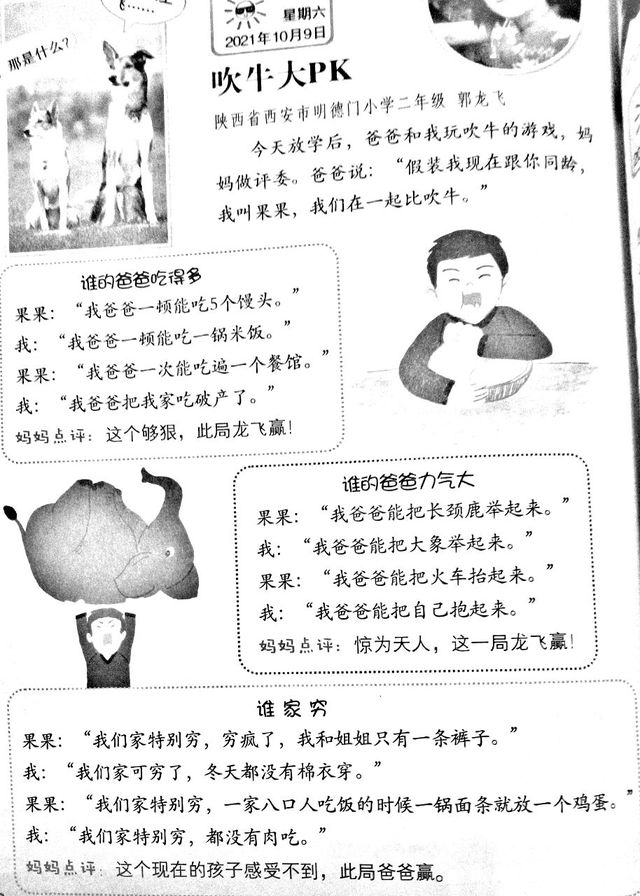 那是什么？
星期六
2021年10月9日
吹牛大PK
陕西省西安市明德门小学二年级 郭龙飞
今天放学后，爸爸和我玩吹牛的游戏，妈
妈做评委。爸爸说：“假装我现在跟你同龄，
我叫果果，我们在一起比吹牛。”
谁的爸爸吃得多
果果：“我爸爸一顿能吃5个馒头。”
我：“我爸爸一顿能吃一锅米饭。”
果果：“我爸爸一次能吃遍一个餐馆。”
我：“我爸爸把我家吃破产了。”
妈妈点评：这个够狠，此局龙飞赢！
谁的爸爸力气大
果果：“我爸爸能把长颈鹿举起来。”
我：“我爸爸能把大象举起来。”
果果：“我爸爸能把火车抬起来。”
我：“我爸爸能把自己抱起来。”
妈妈点评：惊为天人，这一局龙飞赢！
谁家穷
果果：“我们家特别穷，穷疯了，我和姐姐只有一条裤子。”
我：“我们家可穷了，冬天都没有棉衣穿。”
果果：“我们家特别穷，一家八口人吃饭的时候一锅面条就放一个鸡蛋。”
我：“我们家特别穷，都没有肉吃。”
妈妈点评：这个现在的孩子感受不到，此局爸爸赢。